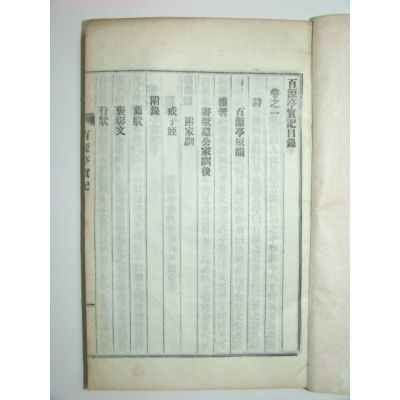 百源亭實記目錄
卷之一
詩
百源亭原韻
雜著
書壁還公家訓後
附家訓
戒子姪
附錄
薦狀
褒彰文
行狀
百源亭實記